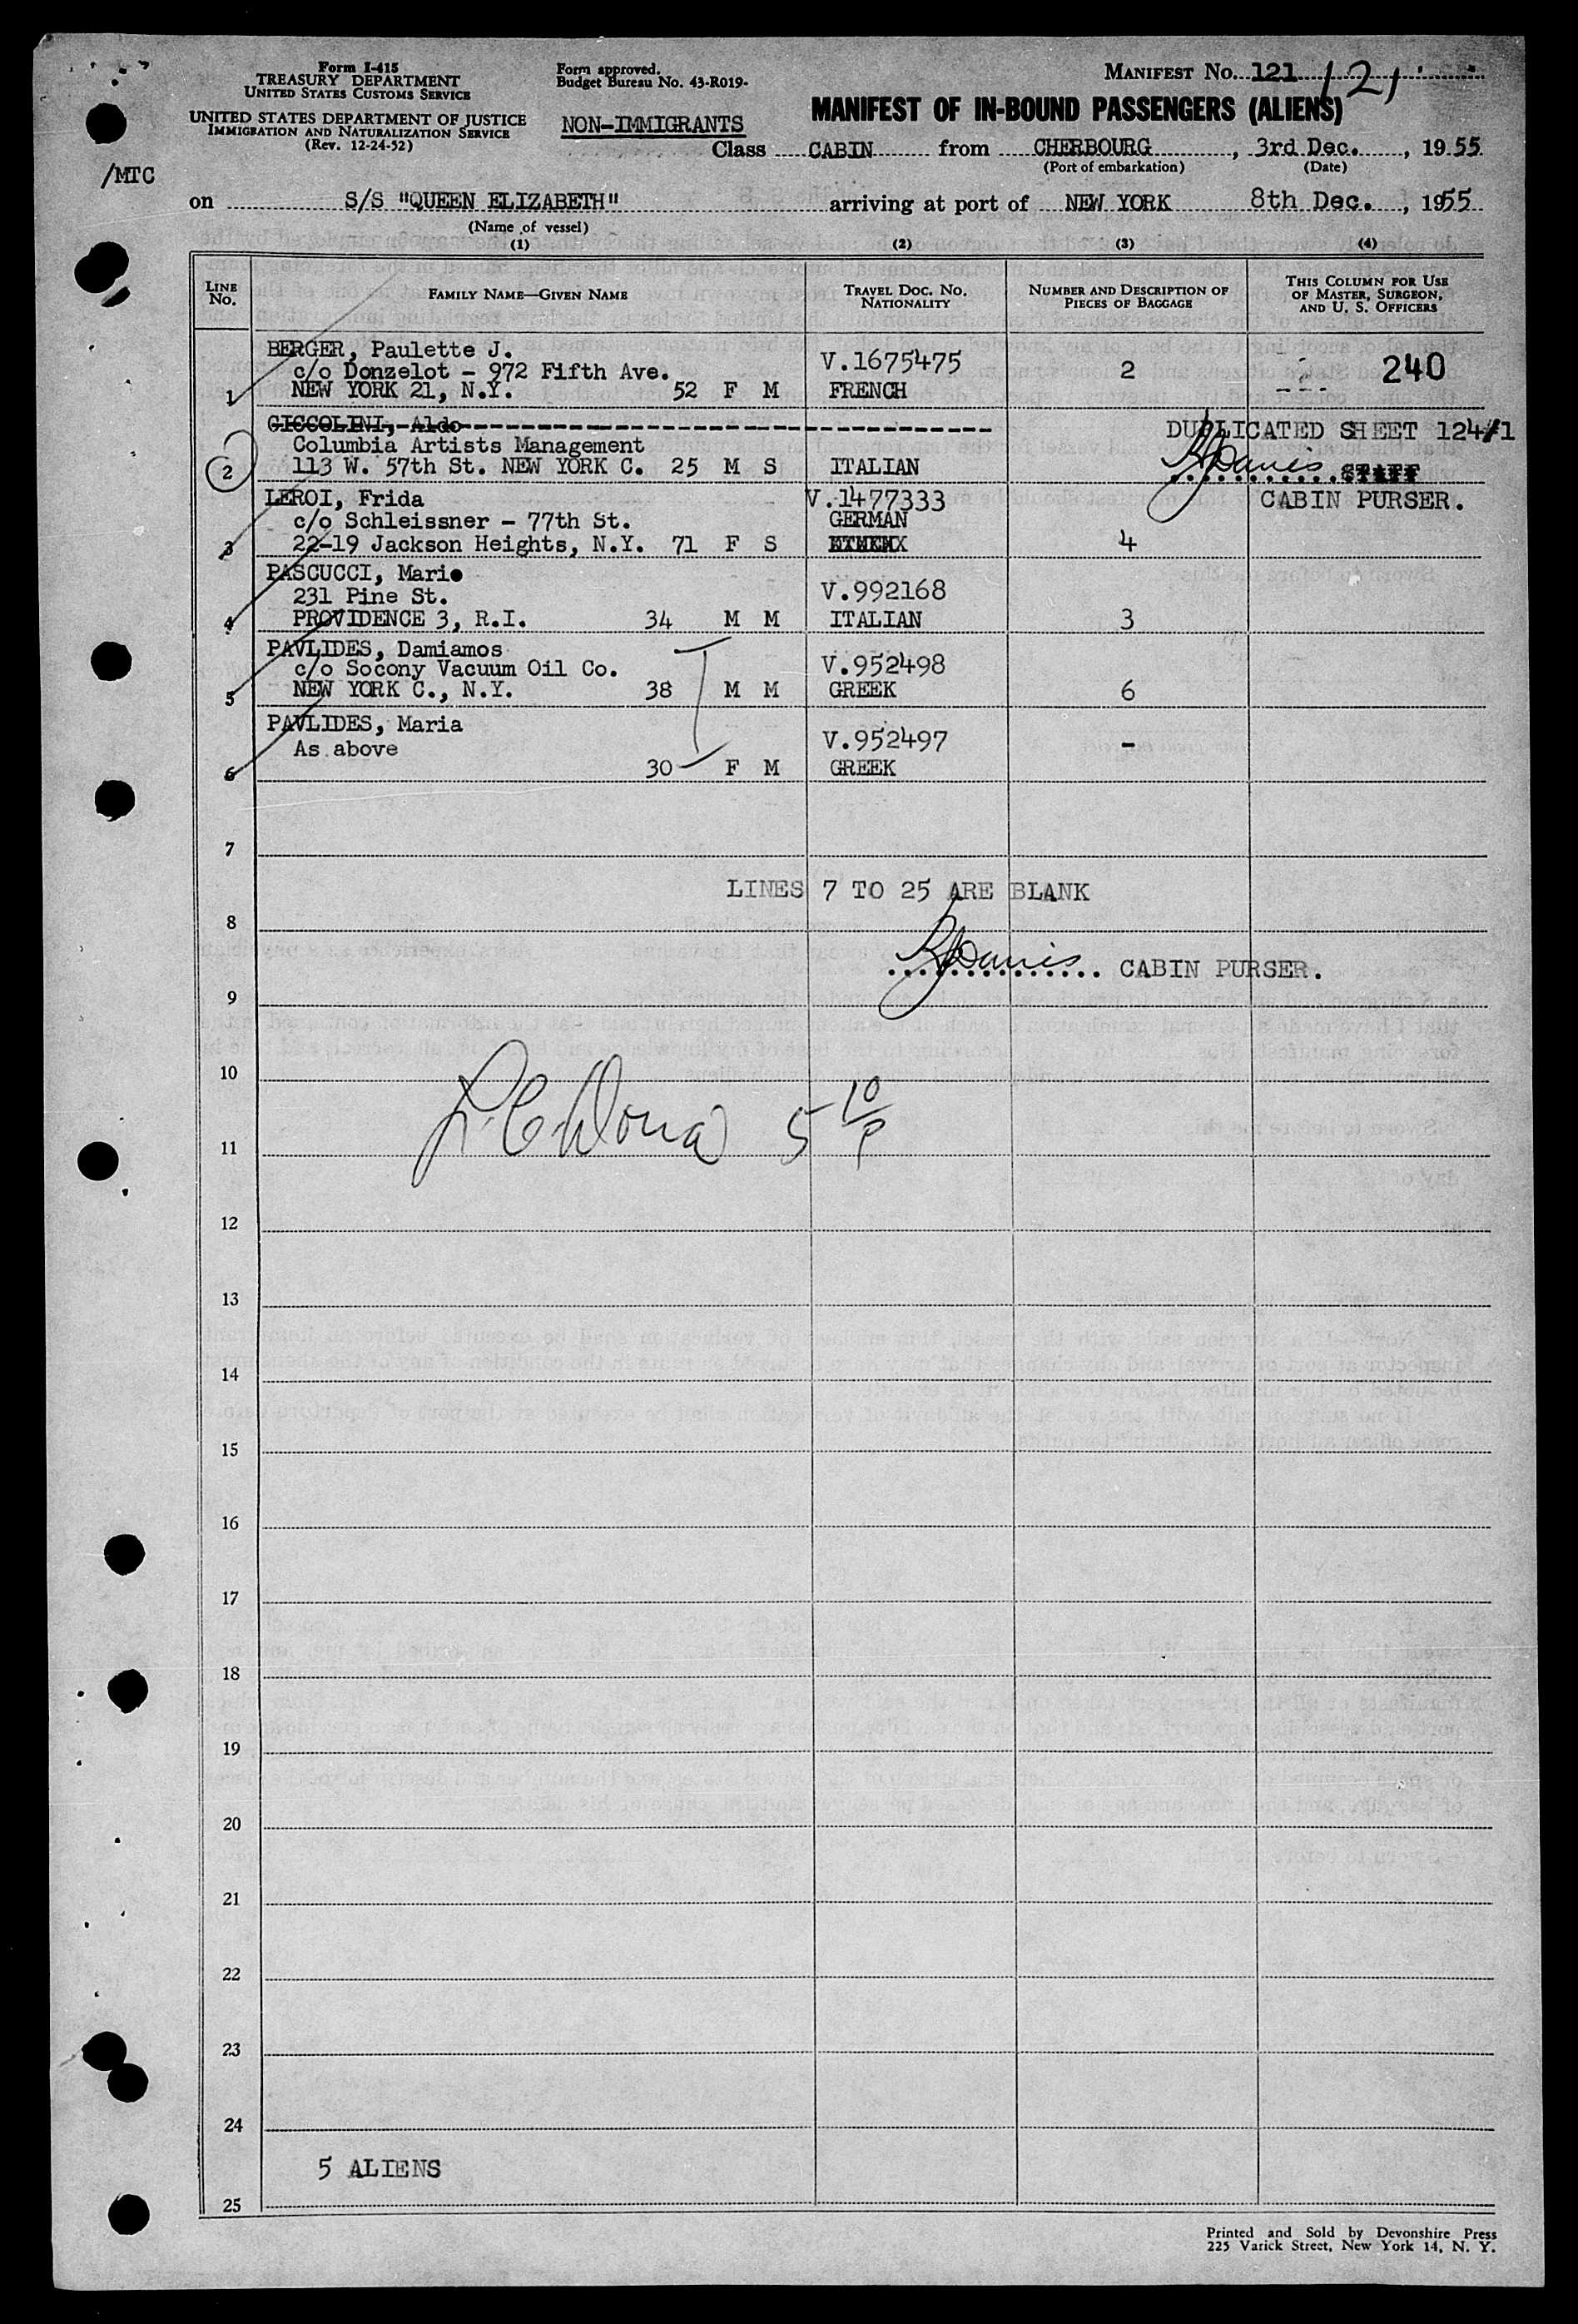 Form I-415
TREASURY DEPARTMENT
UNITED STATES CUSTOMS SERVICE
UNITED STATES DEPARTMENT OF JUSTICE
IMMIGRATION AND NATURALIZATION SERVICE
(Rev. 12-24-52)
/MTC
Form approved.
Budget Bureau No. 43-R019-
NON-IMMIGRANTS
MANIFEST NO. 121 121
MANIFEST OF IN-BOUND PASSENGERS (ALIENS)
Class CABIN from CHERBOURG, 3rd Dec., 1955
(Port of embarkation) (Date)
on S/S "QUEEN ELIZABETH" arriving at port of NEW YORK 8th Dec., 1955
(Name of vessel)
(1) (2) (3) (4)
LINE NO. FAMILY NAME—GIVEN NAME TRAVEL DOC. NO. NATIONALITY NUMBER AND DESCRIPTION OF PIECES OF BAGGAGE THIS COLUMN FOR USE OF MASTER, SURGEON, AND U. S. OFFICERS
BERGER, Paulette J. V.1675475
c/o Donzelot - 972 Fifth Ave. 2 240
1 NEW YORK 21, N.Y. 52 F M FRENCH
CICCOLINI, Aldo DUPLICATED SHEET 124/1
Columbia Artists Management
2 113 W. 57th St. NEW YORK C. 25 M S ITALIAN Davis STAFF
LEROI, Frida V.1477333 CABIN PURSER.
c/o Schleissner - 77th St. GERMAN
3 22-19 Jackson Heights, N.Y. 71 F S 4
PASCUCCI, Mario
231 Pine St. V.992168
4 PROVIDENCE 3, R.I. 34 M M ITALIAN 3
PAVLIDES, Damiamos
c/o Socony Vacuum Oil Co. V.952498
5 NEW YORK C., N.Y. 38 M M GREEK 6
PAVLIDES, Maria
As above V.952497 -
6 30 F M GREEK
7
LINES 7 TO 25 ARE BLANK
8
Davis CABIN PURSER.
9
10
5 10/P
11
12
13
14
15
16
17
18
19
20
21
22
23
24
5 ALIENS
25
Printed and Sold by Devonshire Press
225 Varick Street, New York 14, N. Y.